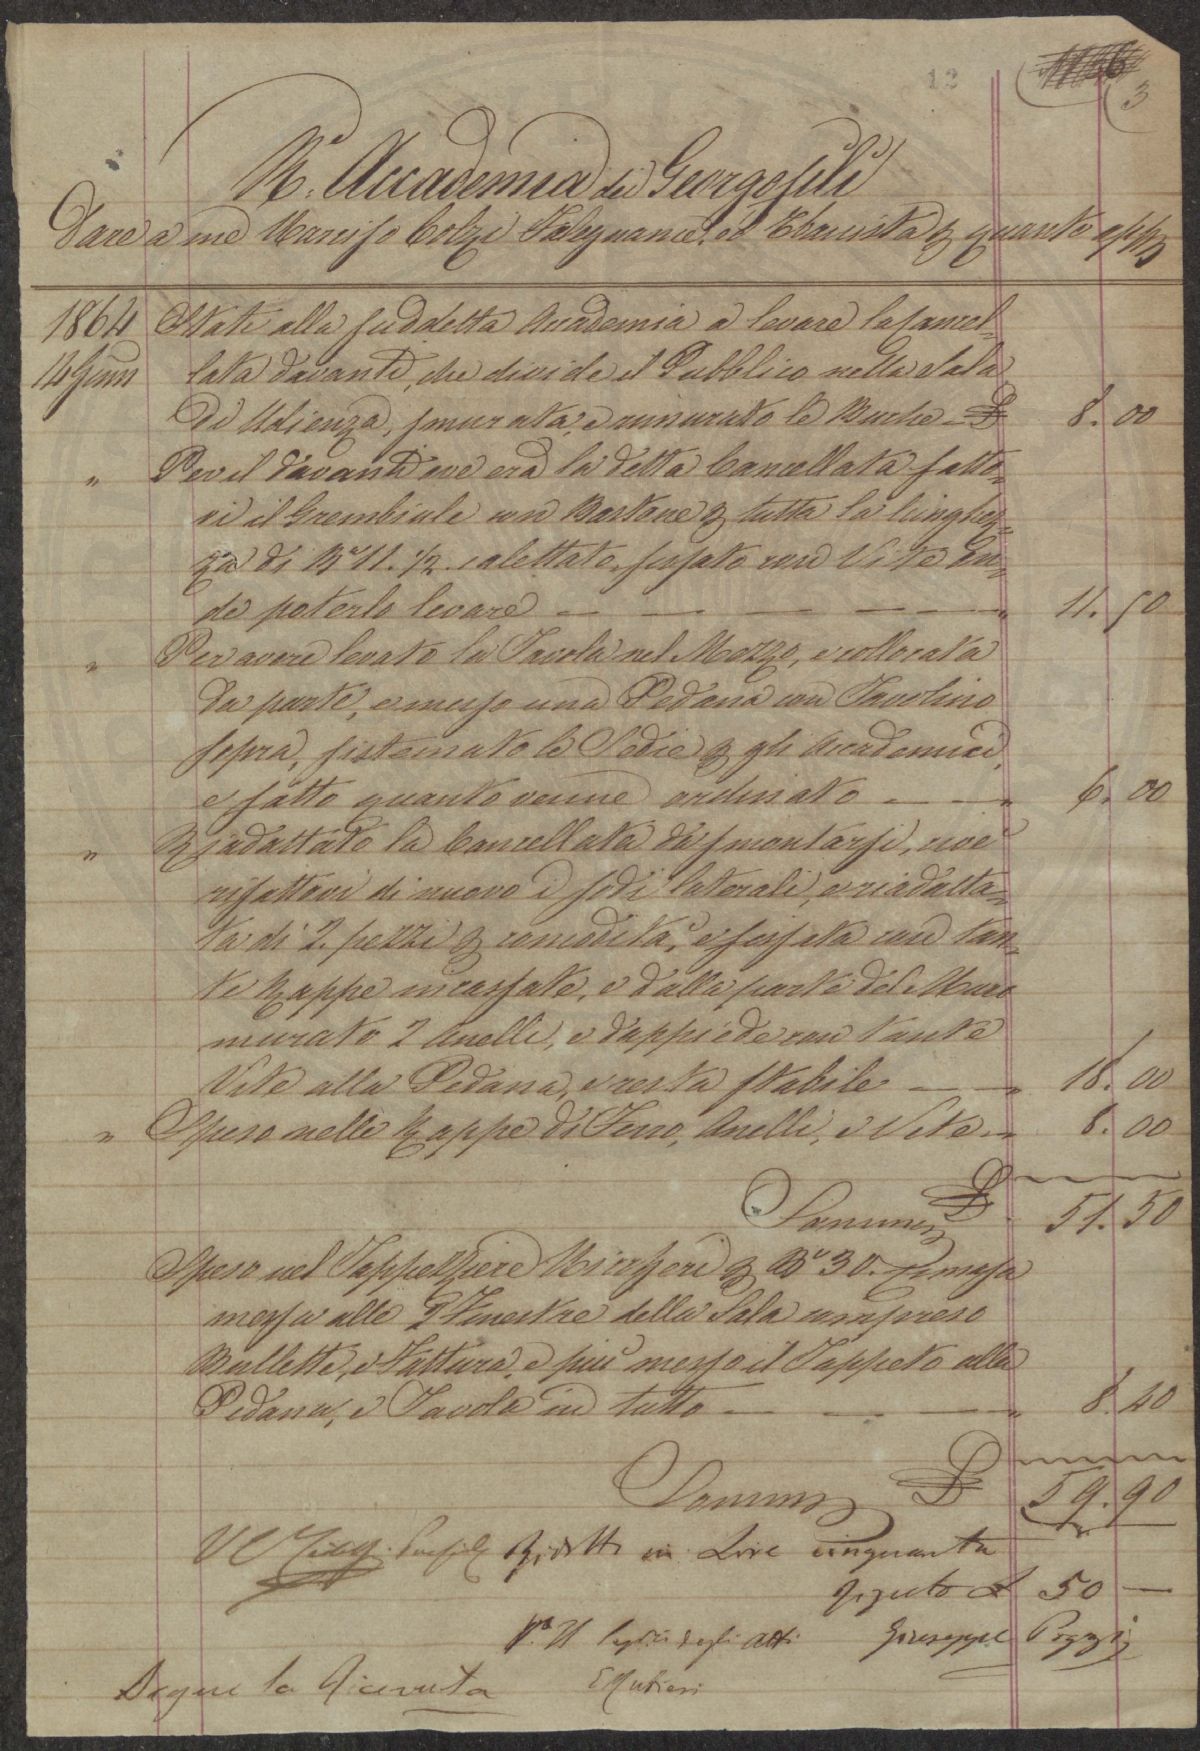 12
3
R. Accademia dei Georgofili
Dare a me Narciso Colzi Falegname, ed Ebanista
1864 Stati alla suddetta Accademia a levare la Cancel=
14 Giun lata davanti, che divide il Pubblico nella Sala
di Udienza, smurata, e rimurato le Buche 8.00
" Per il davanti ove era la detta Cancellata fatto=
vi il Grembiule con Bastone p tutta la lunghez=
za di Bª 11. 1/2. calettato, fissato con Vite On=
de poterlo levare — — — — — " 11.50
" Per avere levato la Tavola nel Mezzo, e collocata
da parte, e messo una Pedana con Tavolino
sopra, sistemato le Sedie p gli Accademici,
e fatto quanto venne ordinato — — " 6.00
" Riadattato la Cancellata da smontarsi, cioè
rifattovi di nuovo i sodi laterali, e riadatta=
ta di 2. pezzi p comodità, e fissata con tan=
te Zappe incassate, e dalla parte del Muro
murato 2 Anelli, e dappiede con tante
Vite alla Pedana, e resta stabile — — " 18.00
" Speso nelle Zappe di Ferro, Anelli, e Vite — " 8.00
Somma 51.50
Speso nel Tappezziere p Bª 30.
messa alle 2 Finestre della Sala compreso
Bullette, e Fattura, e più messo il Tappeto alla
Pedana, e Tavola in tutto — — — " 8.40
Somma 59.90
Ridotto in Lire cinquanta
50 —
degli Atti Giuseppe Pozzi
Segue la Ricevuta